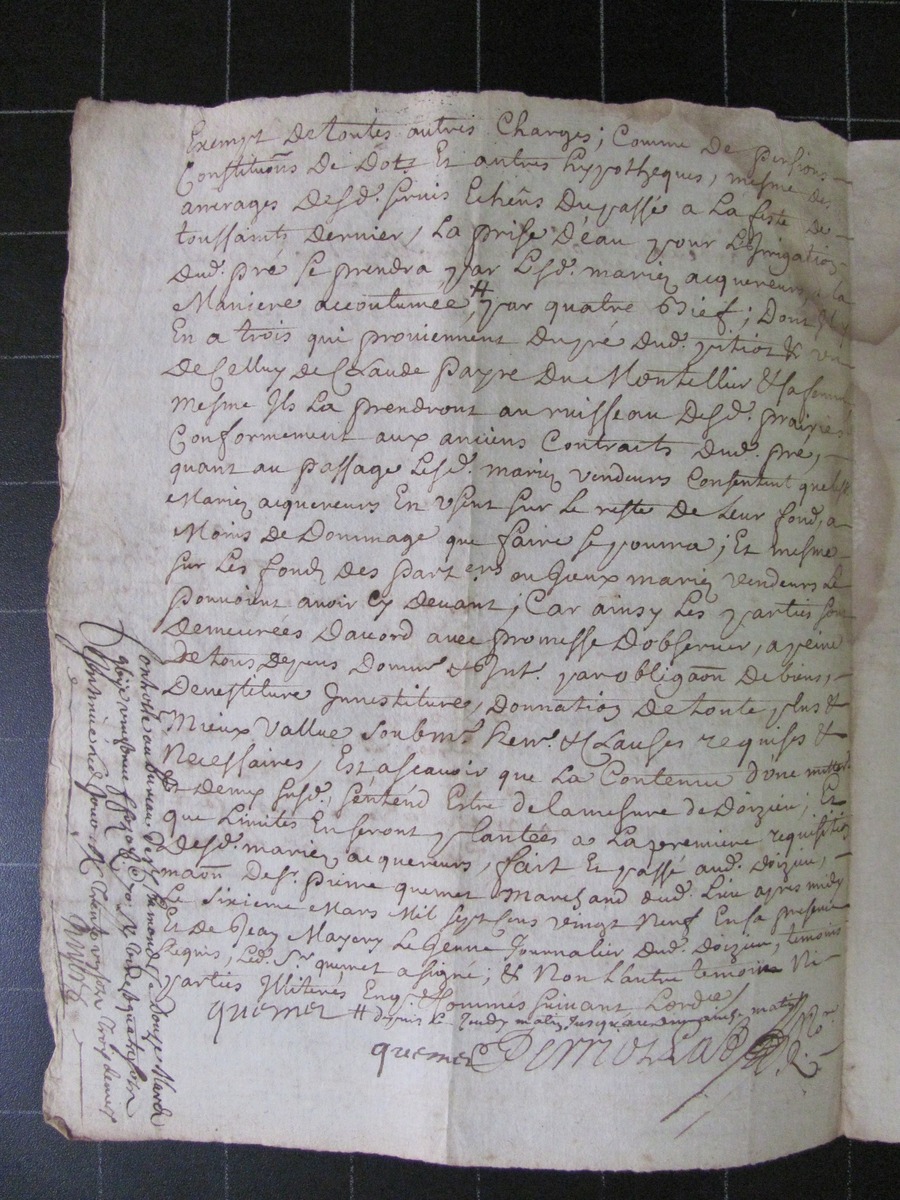 Exempt De toutes autres Charges; Comme De pensions
Constituons De Dots Et autres hypotheques, mesme des
arrerages Desd. servis Echeus Du passé a La feste De
toussaints Dernier, La prise D'eau pour L'Irrigation
Dud. pré se prendra par Lesd. mariez acquereurs, a la
Maniere accoutumée, # par quatre Bief; Dont Il y
En a trois qui proviennent Du pré Dud. pitiot & un
De Celluy de Claude payre Du Montellier & sa femme
mesme Ils La prendront au ruisseau Desd. prairies
Conformement aux anciens Contraits Dud. pré,
quant au passage Lesd. mariez vendeurs Consentent que lesd.
Mariez acquereurs En Usent sur Le reste De Leur fond, a
Moins De Dommage que faire se pourra; Et mesme
sur Les fonds Des part.ers ou Iceux mariez vendeurs Le
pouvoient avoir Cy Devant; Car ainsy Les parties sont
Demeurées Daccord avec promesse D'observer, a peine
De tous Depens Domm. & Int. par obligaon De biens,
Devestiture Investiture, Donnation De toute plus &
Mieux Vallue soubm. Ren. & Clauses requises &
Necessaires, Est ascavoir que La Contenue d'une metterée
& Demy susd. s'entend Estre de la mesure de Doizieu; Et
que Limites En seront plantées a La premiere requisition
Desd. mariez acquereurs, fait Et passé aud. Doizieu,
maon De sr. pierre quemet Marchand dud. Lieu apres midy
Le sixieme Mars Mil sept Cens vingt Neuf En sa presence
Et De Jean Mayery Le Jeune Journalier Dud. Doizieu, temoins
requis, Led. Sr. quemet a signé; & Non L'autre temoin Ni
parties Illiterés Enq. & sommés suivant L'ord.e
quemet # depuis Le Jeudy matin jusqu'au dimanche matin
quemet
Controllé au bureau de St. chamond Le Douze Mars
gbije vingt neuf